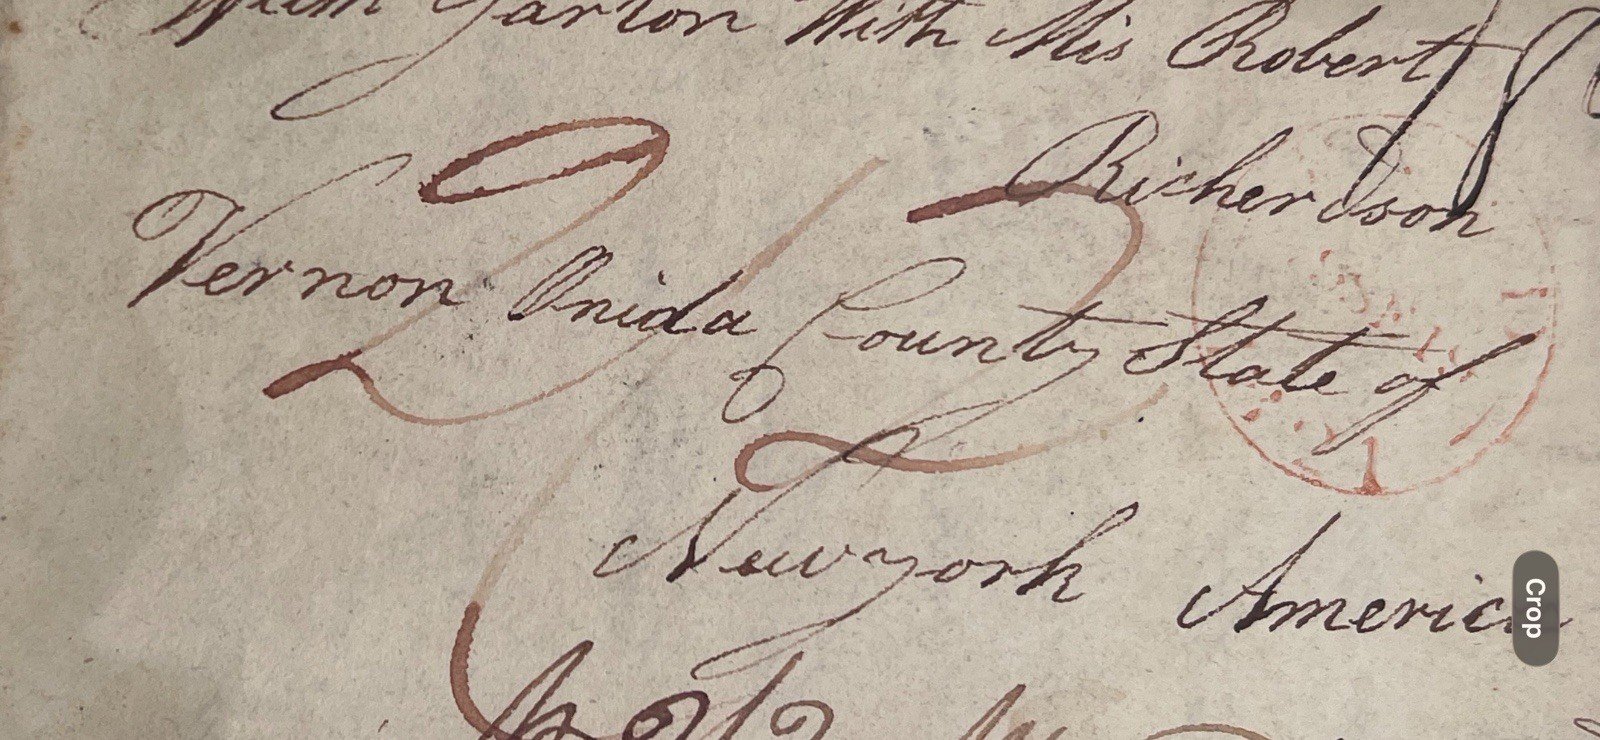 Garton With Mis Robert
Richerdson
Vernon Onida County State of
Newyork
America
Crop